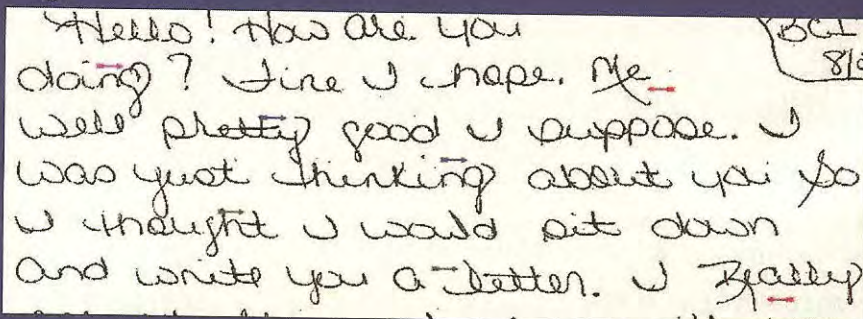 Hello! How are you
doing? Fine I hope. Me
well pretty good I suppose. I
was just thinking about you so
I thought I would sit down
and write you a letter. I Really
BCI